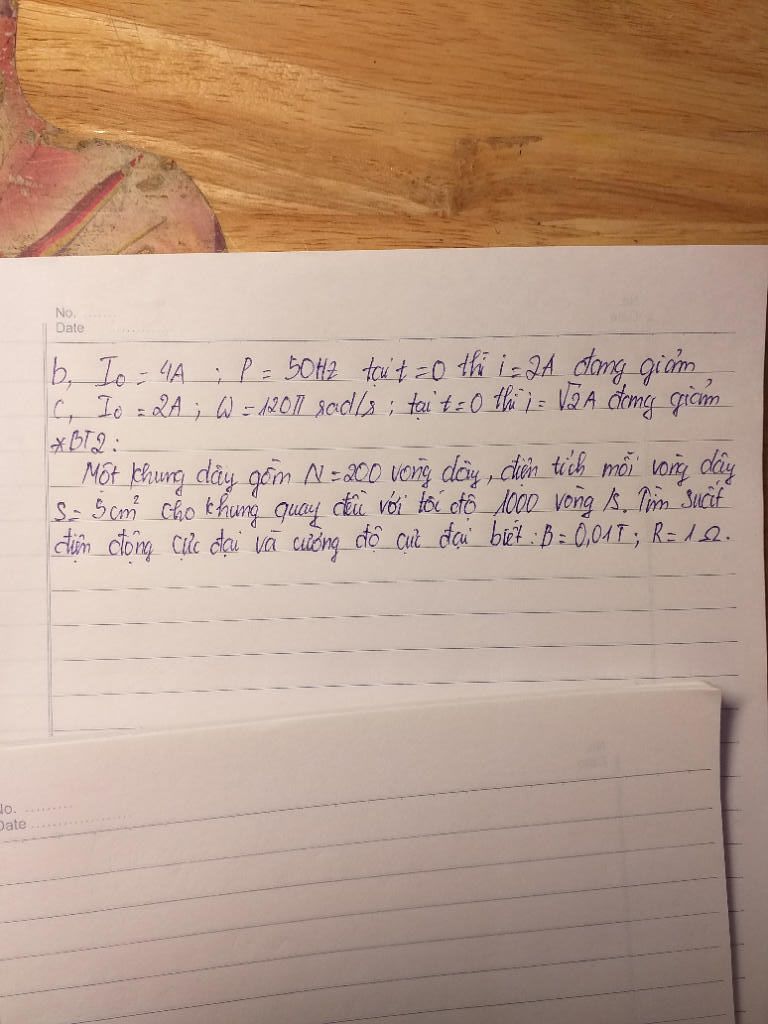 No. ........
Date ............
b, I₀ = 4A ; P = 50Hz tại t = 0 thì i = 2A đang giảm
c, I₀ = 2A ; ω = 120π rad/s ; tại t = 0 thì i = √2A đang giảm
*BT2:
Một khung dây gồm N = 200 vòng dây, diện tích mỗi vòng dây
S = 5cm² cho khung quay đều với tốc độ 1000 vòng /s. Tìm suất
điện động cực đại và cường độ cực đại biết : B = 0,01T ; R = 1Ω.
No. ..........
Date ......................